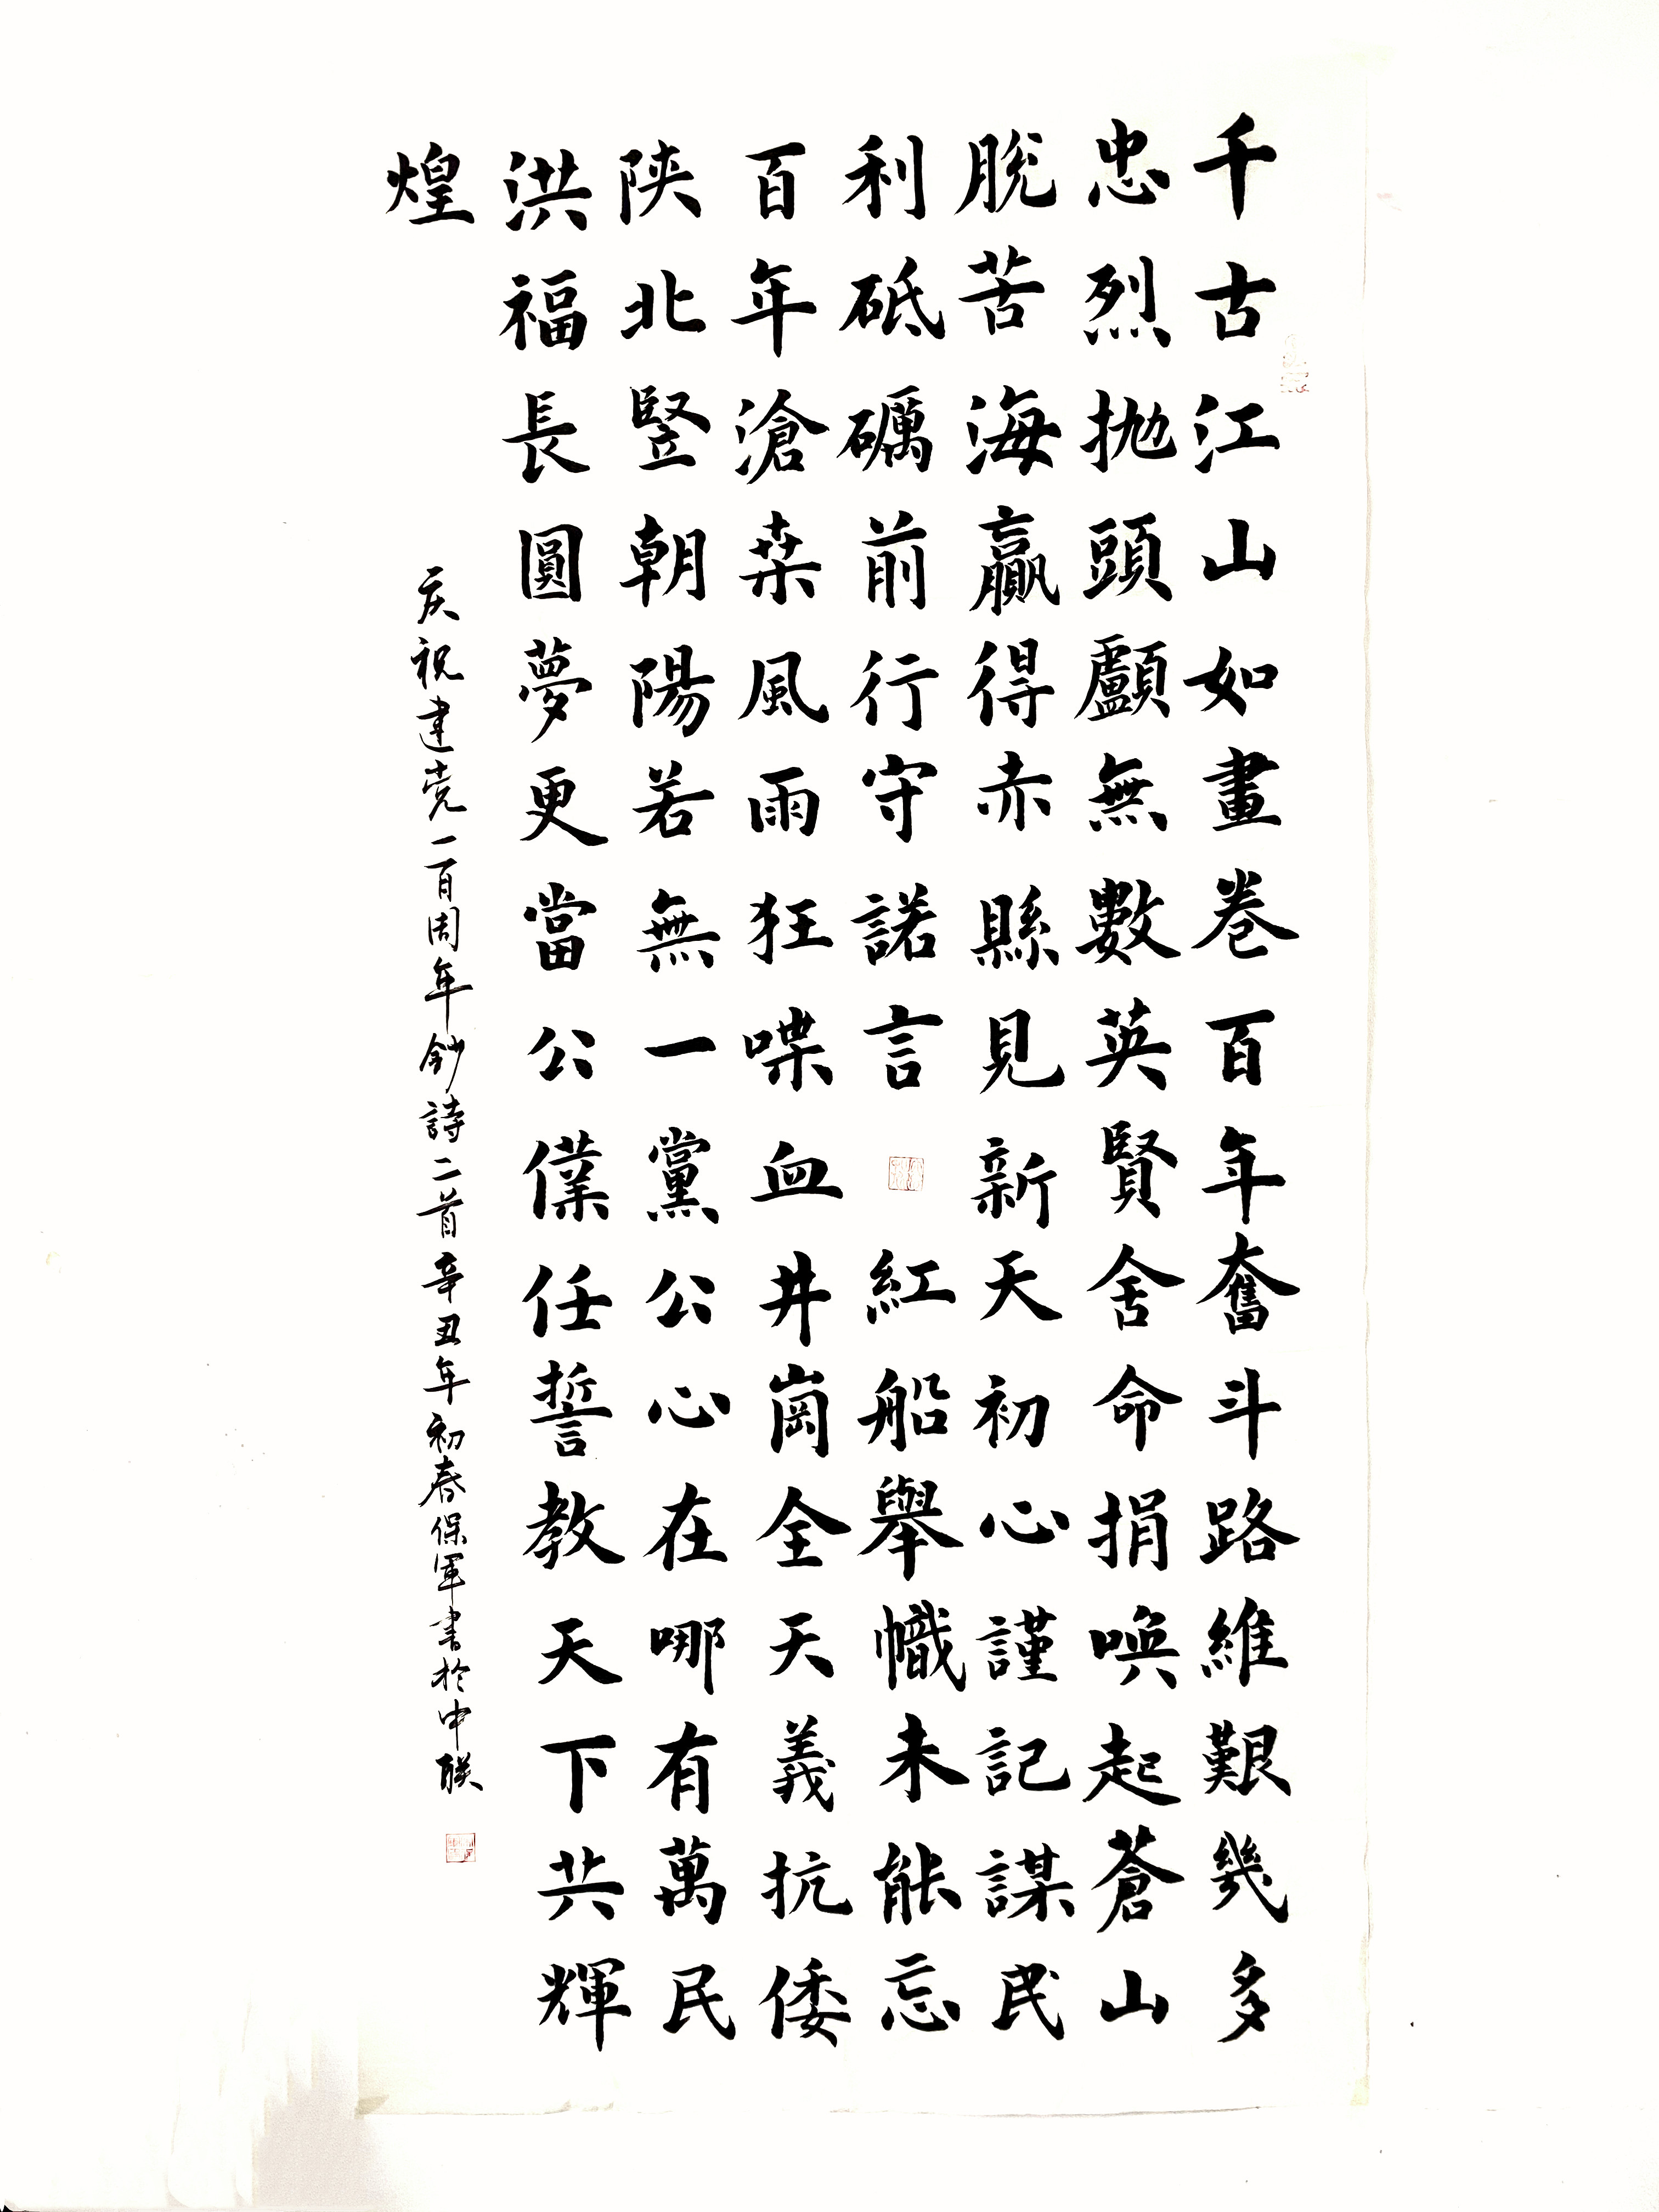 千古江山如畫卷百年奮斗路維艱幾多
忠烈抛頭顱無數英賢舍命捐喚起蒼山
脫苦海贏得赤縣見新天初心謹記謀民
利砥礪前行守諾言紅船舉幟未能忘
百年滄桒風雨狂喋血井崗全天義抗倭
陝北竪朝陽若無一黨公心在哪有萬民
洪福長圓夢更當公僕任誓教天下共輝
煌
庆祝建党一百周年鈔詩二首辛丑年初春保軍書於中联